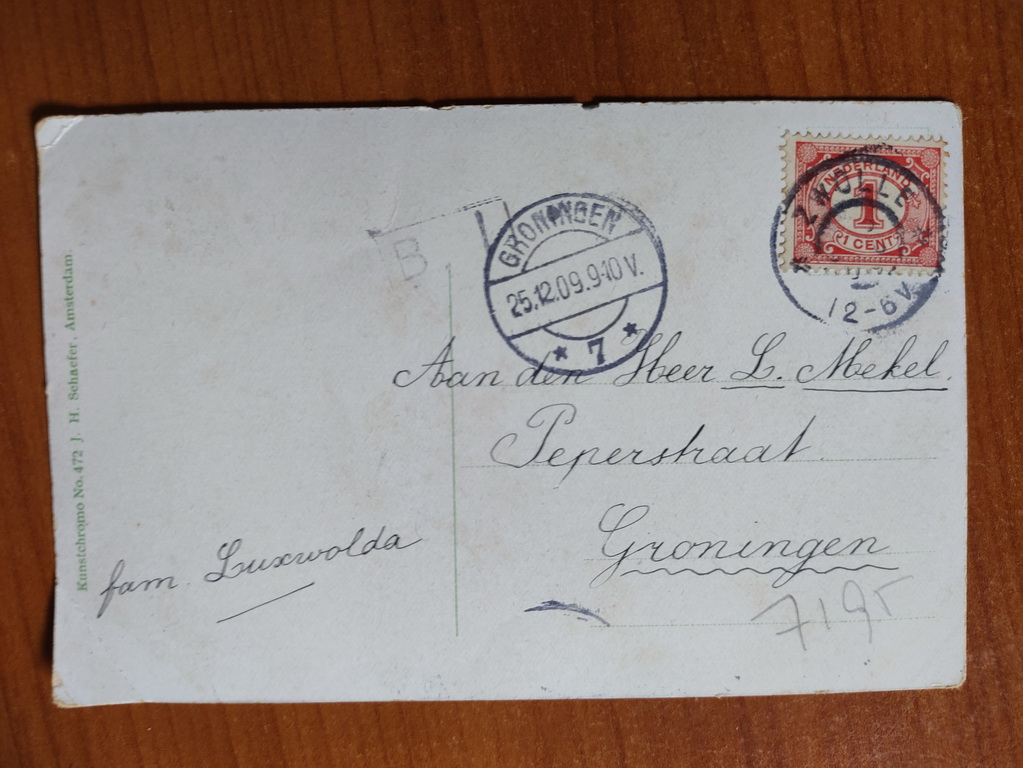 Kunstchromo No. 472 J. H. Schaefer. Amsterdam
B.
GRONINGEN
25.12.09.9-10 V.
7
NEDERLAND
1
1 CENT
ZWOLLE
12-6V
Aan den Heer L. Mekel.
Peperstraat.
Groningen
fam. Luxwolda